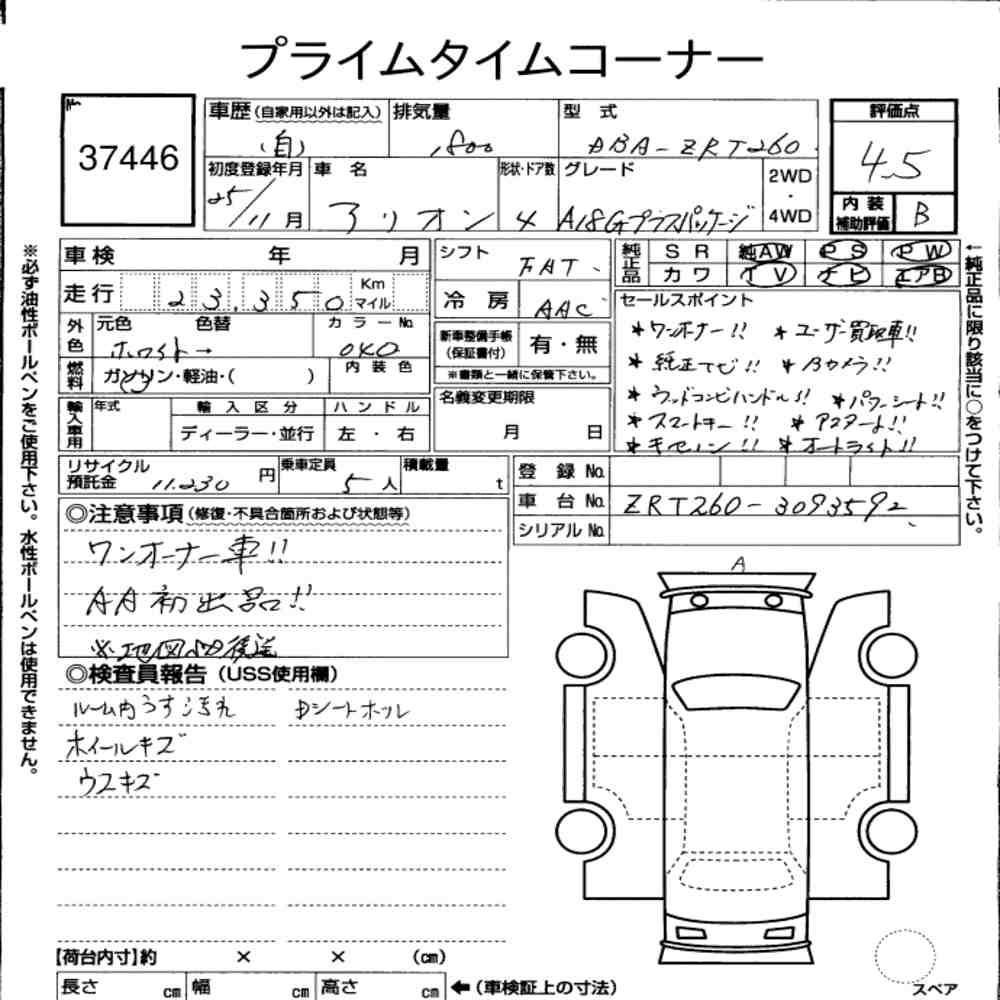 プライムタイムコーナー
37446
車歴(自家用以外は記入) 排気量 型 式 評価点
(自) 1800 ABA-ZRT260 4.5
初度登録年月 車 名 形状・ドア数 グレード 2WD・4WD 内装補助評価 B
25/11月 アリオン 4 A18Gプラスパッケージ
車検 年 月
走行 23,350 Km マイル
外色 元色 色替 カラーNo.
ホワイト→ 040
燃料 ガソリン・軽油・( ) 内装色
輸入車用 年式 輸入区分 ハンドル
ディーラー・並行 左・右
シフト FAT
冷房 AAC
新車整備手帳(保証書付) 有・無
※書類と一緒に保管下さい。
名義変更期限
月 日
純正品 SR 純AW PS PW
カワ TV ナビ エアB
セールスポイント
*ワンオーナー!! *ユーザー買取車!!
*純正ナビ!! *Bカメラ!!
*ウッドコンビハンドル!! *パワーシート!!
*スマートキー!! *アスタート!!
*キセノン!! *オートライト!!
リサイクル預託金 11,230円 乗車定員 5人 積載量 t
登録No.
車台No. ZRT260-3093592
シリアルNo.
◎注意事項(修復・不具合箇所および状態等)
ワンオーナー車!!
AA初出品!!
※地図SD後送
◎検査員報告(USS使用欄)
ルーム内うすヨゴレ Dシートホツレ
ホイールキズ
ウスキズ
A
【荷台内寸】約 × × (cm)
長さ cm 幅 cm 高さ cm ←(車検証上の寸法)
スペア
※必ず油性ボールペンをご使用下さい。水性ボールペンは使用できません。
←純正品に限り該当に○をつけて下さい。